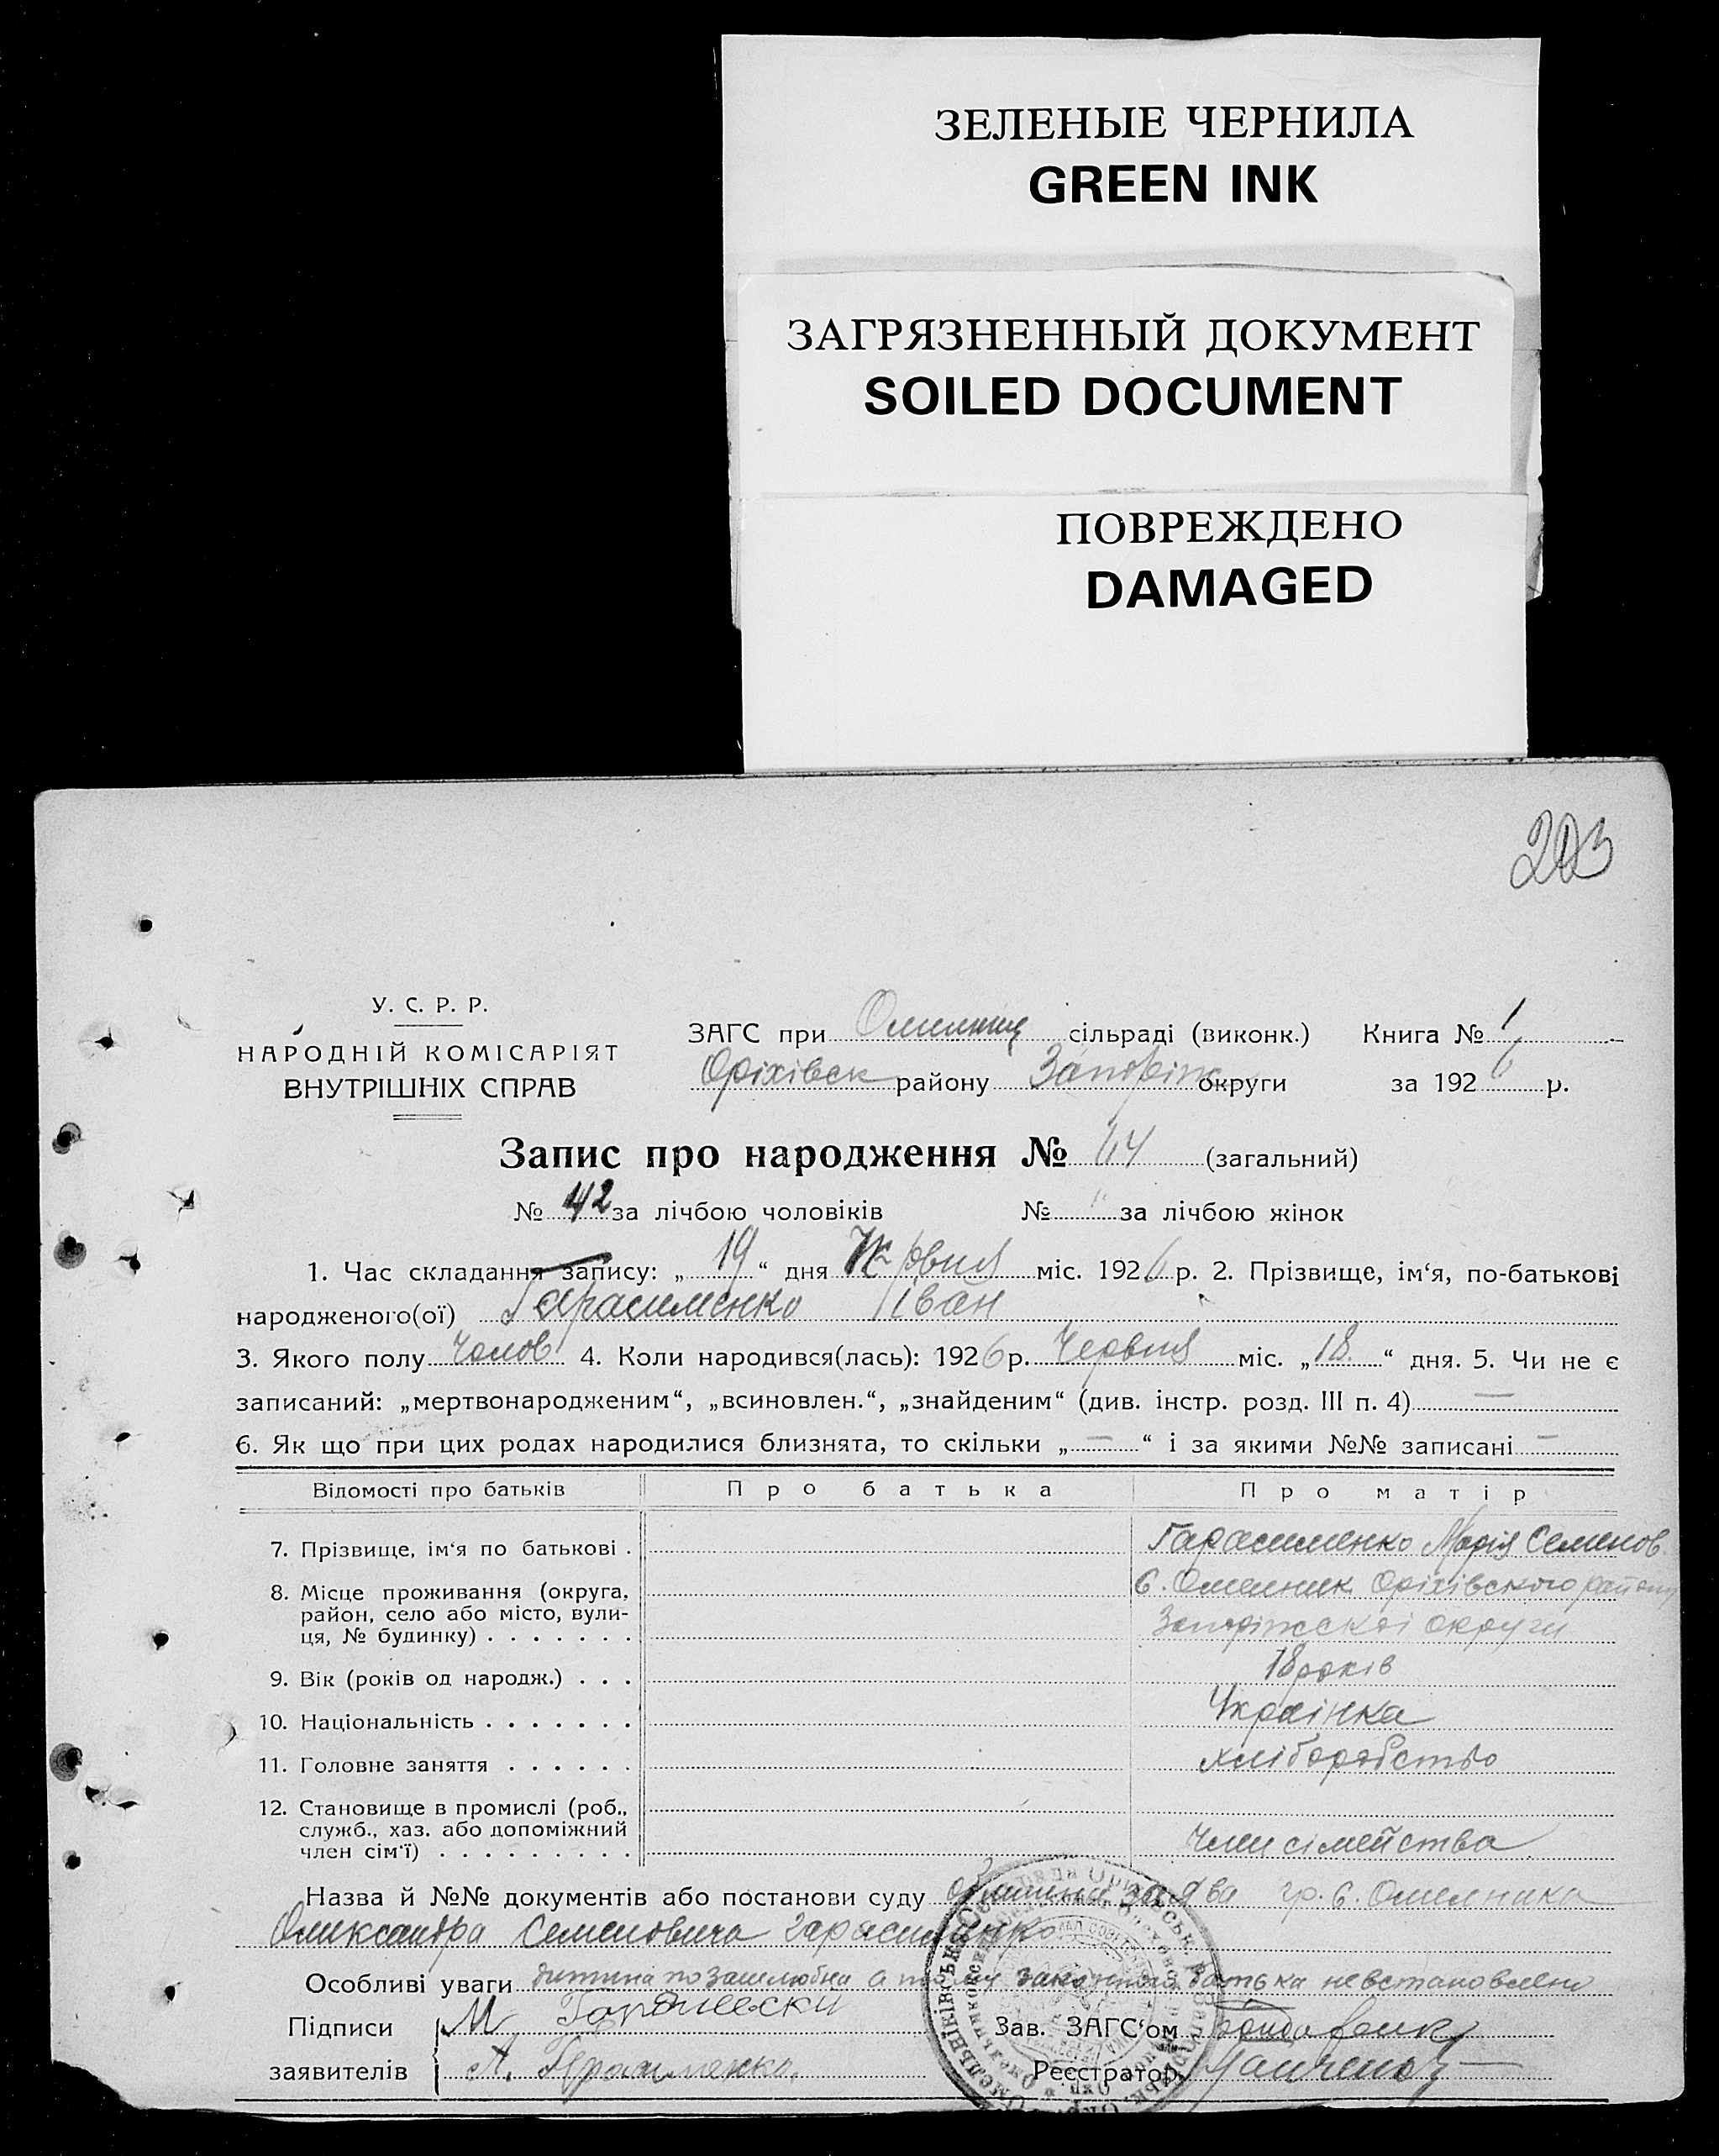 ЗЕЛЕНЫЕ ЧЕРНИЛА
GREEN INK
ЗАГРЯЗНЕННЫЙ ДОКУМЕНТ
SOILED DOCUMENT
ПОВРЕЖДЕНО
DAMAGED
У. С. Р. Р.
НАРОДНІЙ КОМІСАРІЯТ
ВНУТРІШНІХ СПРАВ
ЗАГС при сільраді (виконк.) Книга № 1
Оріхівск району Запоріж округи за 1926 р.
Запис про народження № 64 (загальний)
№ 42 за лічбою чоловіків № " за лічбою жінок
1. Час складання запису: „19“ дня Червня міс. 1926 р. 2. Прізвище, ім‘я, по-батькові
народженого(ої) Гарасименко Іван
3. Якого полу Чолов 4. Коли народився(лась): 1926 р. Червня міс. „18.“ дня. 5. Чи не є
записаний: „мертвонародженим“, „всиновлен.“, „знайденим“ (див. інстр. розд. III п. 4) —
6. Як що при цих родах народилися близнята, то скільки „—“ і за якими №№ записані —
Відомості про батьків Про батька Про матір
7. Прізвище, ім‘я по батькові . Гарасименко Марія Семенов.
8. Місце проживання (округа, с. Омелник Оріхівського району
район, село або місто, вули-
ця, № будинку) . . . . . . . Запоріжської округи
9. Вік (років од народж.) . . . 18 років
10. Національність . . . . . . . Українка
11. Головне заняття . . . . . . хліборобство
12. Становище в промислі (роб.,
служб., хаз. або допоміжний
член сім‘ї) . . . . . . . . . член сімейства
Назва й №№ документів або постанови суду заява гр. с. Омелника
Олександра Семеновича Гарасименко
Особливі уваги дитина позашлюбна а тому законного батька невстановлено
Підписи М
заявителів А. Герасименко.
Зав. ЗАГС‘ом
Реєстратор